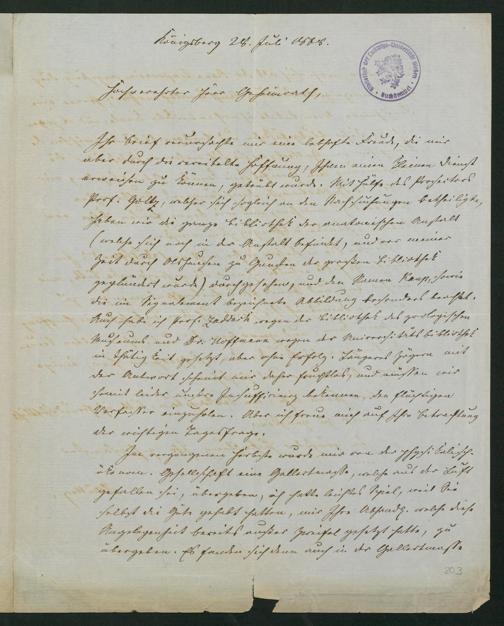 Königsberg 28. Juli 1868.
Hochverehrter Herr Geheimrath,
Ihr Brief verursachte mir eine lebhafte Freude, die mir
aber durch die vereitelte Hoffnung, Ihnen einen kleinen Dienst
erweisen zu können, getrübt wurde. Mit Hülfe des Prosectors
Prof. Goltz, welcher sich sogleich an den Nachsuchungen betheiligte,
haben wir die ganze Bibliothek der anatomischen Anstalt
(welche sich noch in der Anstalt befindet, und vor meiner
Zeit durch zu Gunsten der großen Bibliothek
geplündert wurde) durchgesehen, und den Namen sowie
die im bezeichnete Abbildung besonders beachtet.
Auch habe ich Prof. Zaddach wegen der Bibliothek des zoologischen
Museums und Dr. Hoffmann wegen der Universitätsbibliothek
in Thätigkeit gesetzt aber ohne Erfolg. Längeres Zögern mit
der Antwort scheint mir daher fruchtlos, und müssen wir
somit leider unsere bekennen, den flüchtigen
Verfasser einzuholen. Aber ich freue mich auf Ihre Betrachtung
der wichtigen Tagesfrage.
Im vergangenen Herbste wurde mir von der physikalisch-
ökonom. Gesellschaft eine Gallertmasse, welche aus der Luft
gefallen sei, übergeben, ich hatte leichtes Spiel, weil Sie
selbst die Güte gehabt hatten, mir Ihre Abhandl. welche diese
Angelegenheit bereits außer Zweifel gesetzt hatte, zu
übergeben. Es fanden sich denn auch in der Gallertmasse
203